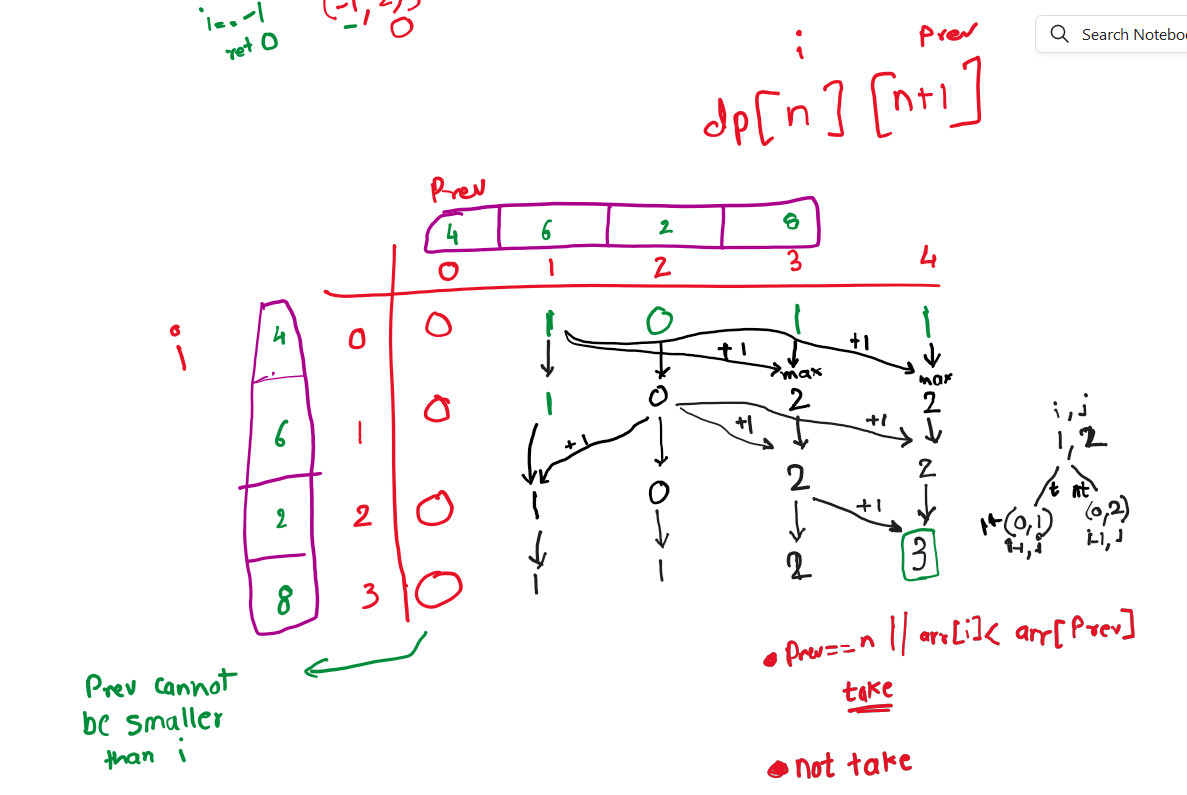 i==-1
ret 0
0
Search Notebo
i prev
dp[n][n+1]
Prev
4 6 2 8
0 1 2 3 4
i 4 0 0 1 0 1 1
+1 +1
max max
6 1 0 1 0 2 2
+1 +1 +1
2 2 0 1 0 2 2
+1
8 3 0 1 1 2 3
i,j
1,2
t nt
1+(0,1) (0,2)
i-1,i i-1,j
Prev cannot
be smaller
than i
• Prev==n || arr[i]< arr[Prev]
take
• not take